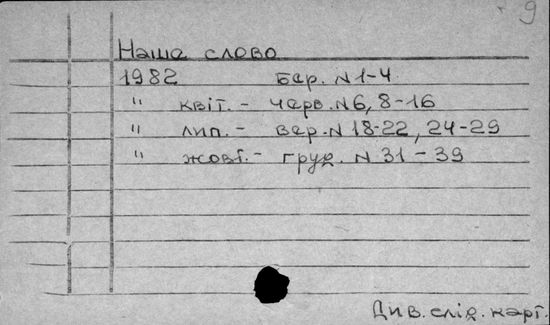 9
Наше слово
1982 Бер. N1-4
" квіт. - черв. N6, 8-16
" лип. - вер. N 18-22, 24-29
" жовт. - груд. N 31-39
Див. слід. карт.